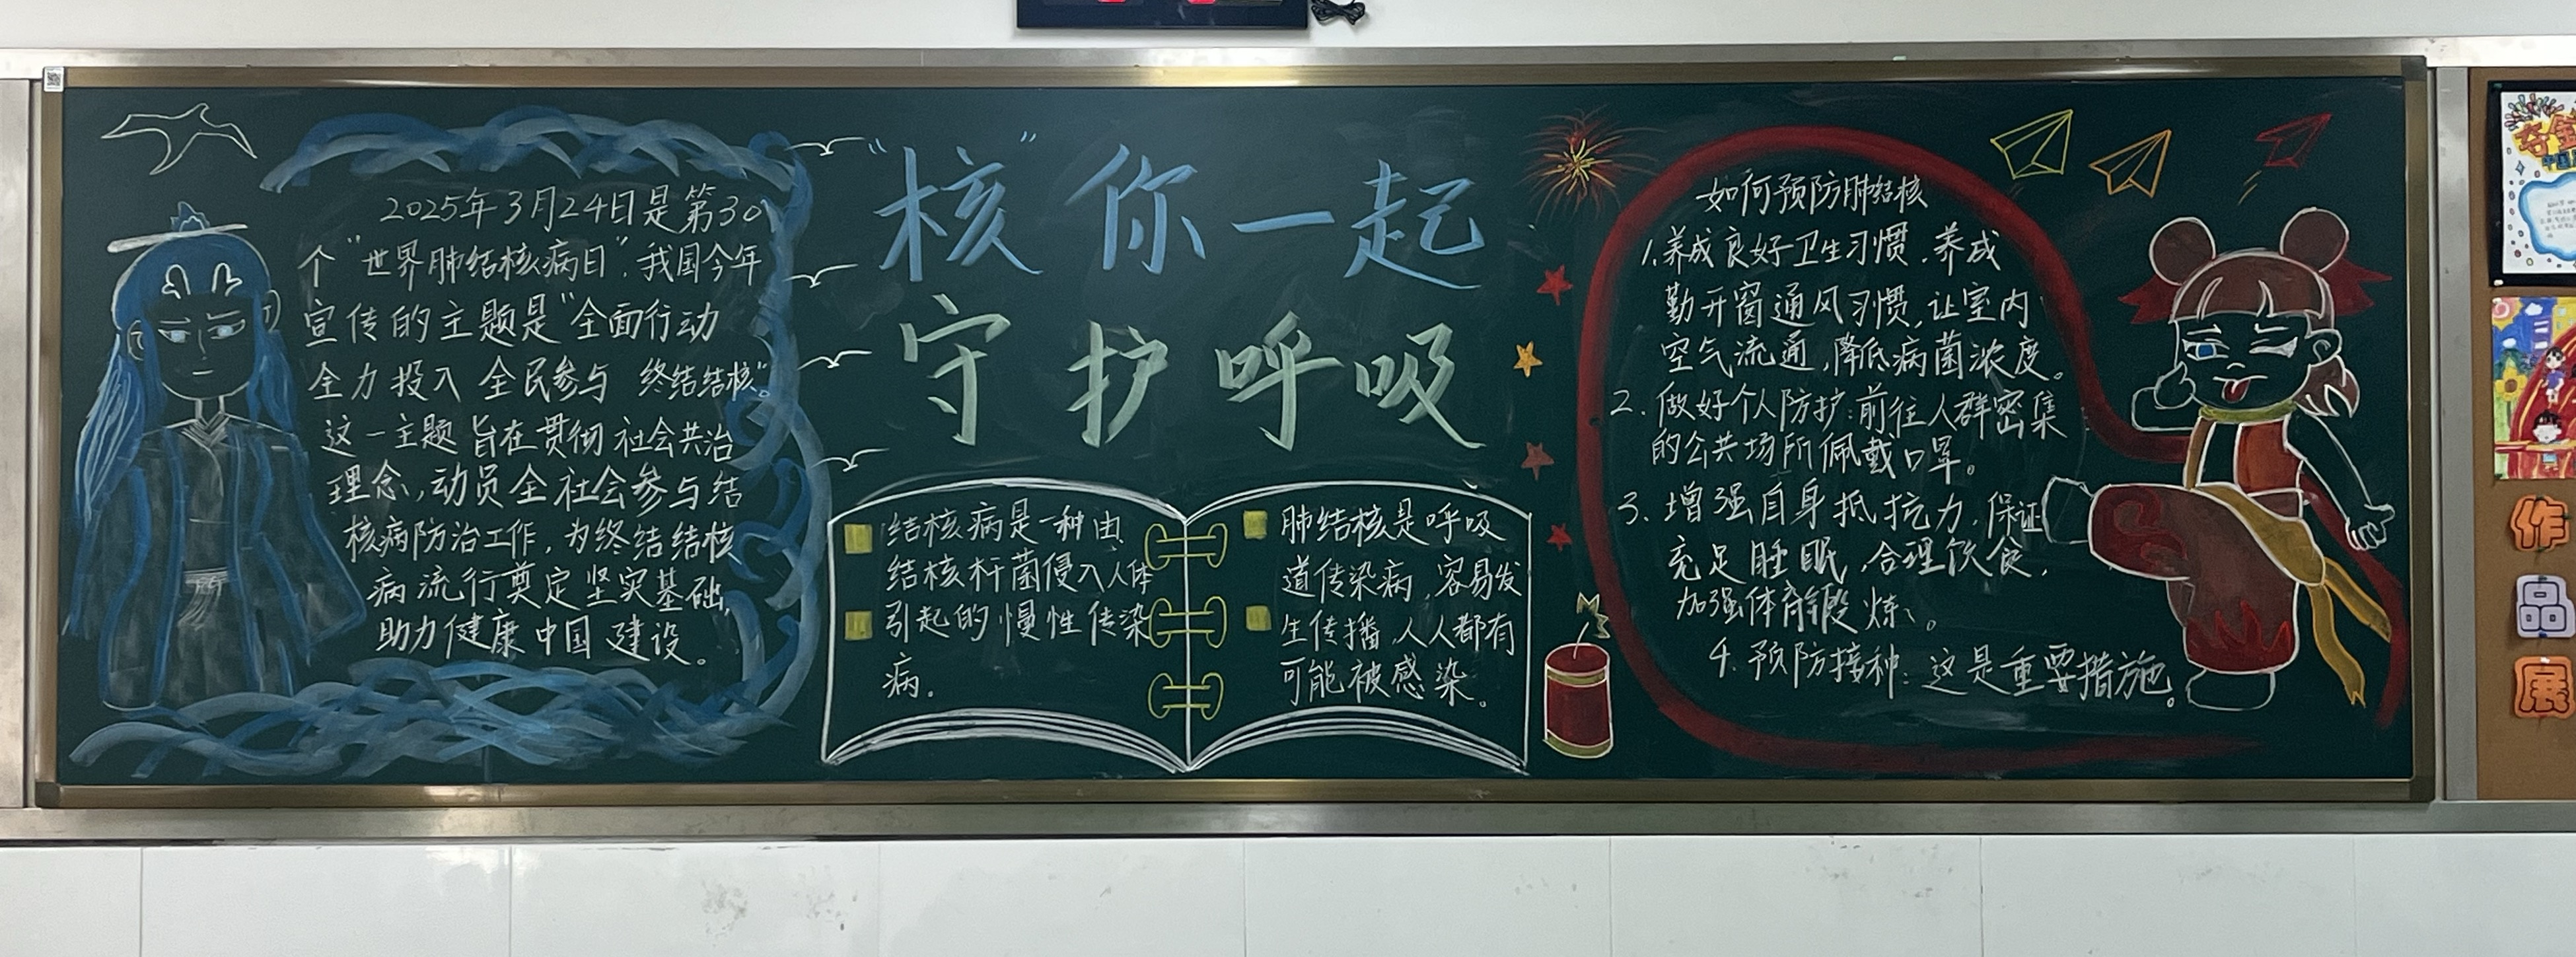 2025年3月24日是第30
个“世界肺结核病日”，我国今年
宣传的主题是“全面行动
全力投入 全民参与 终结结核”。
这一主题旨在贯彻社会共治
理念，动员全社会参与结
核病防治工作，为终结结核
病流行奠定坚实基础，
助力健康中国建设。
“核”你一起
守护呼吸
结核病是一种由
结核杆菌侵入人体
引起的慢性传染
病。
肺结核是呼吸
道传染病，容易发
生传播，人人都有
可能被感染。
如何预防肺结核
1.养成良好卫生习惯，养成
勤开窗通风习惯，让室内
空气流通，降低病菌浓度。
2.做好个人防护：前往人群密集
的公共场所佩戴口罩。
3.增强自身抵抗力，保证
充足睡眠，合理饮食，
加强体育锻炼。
4.预防接种：这是重要措施。
作
品
展